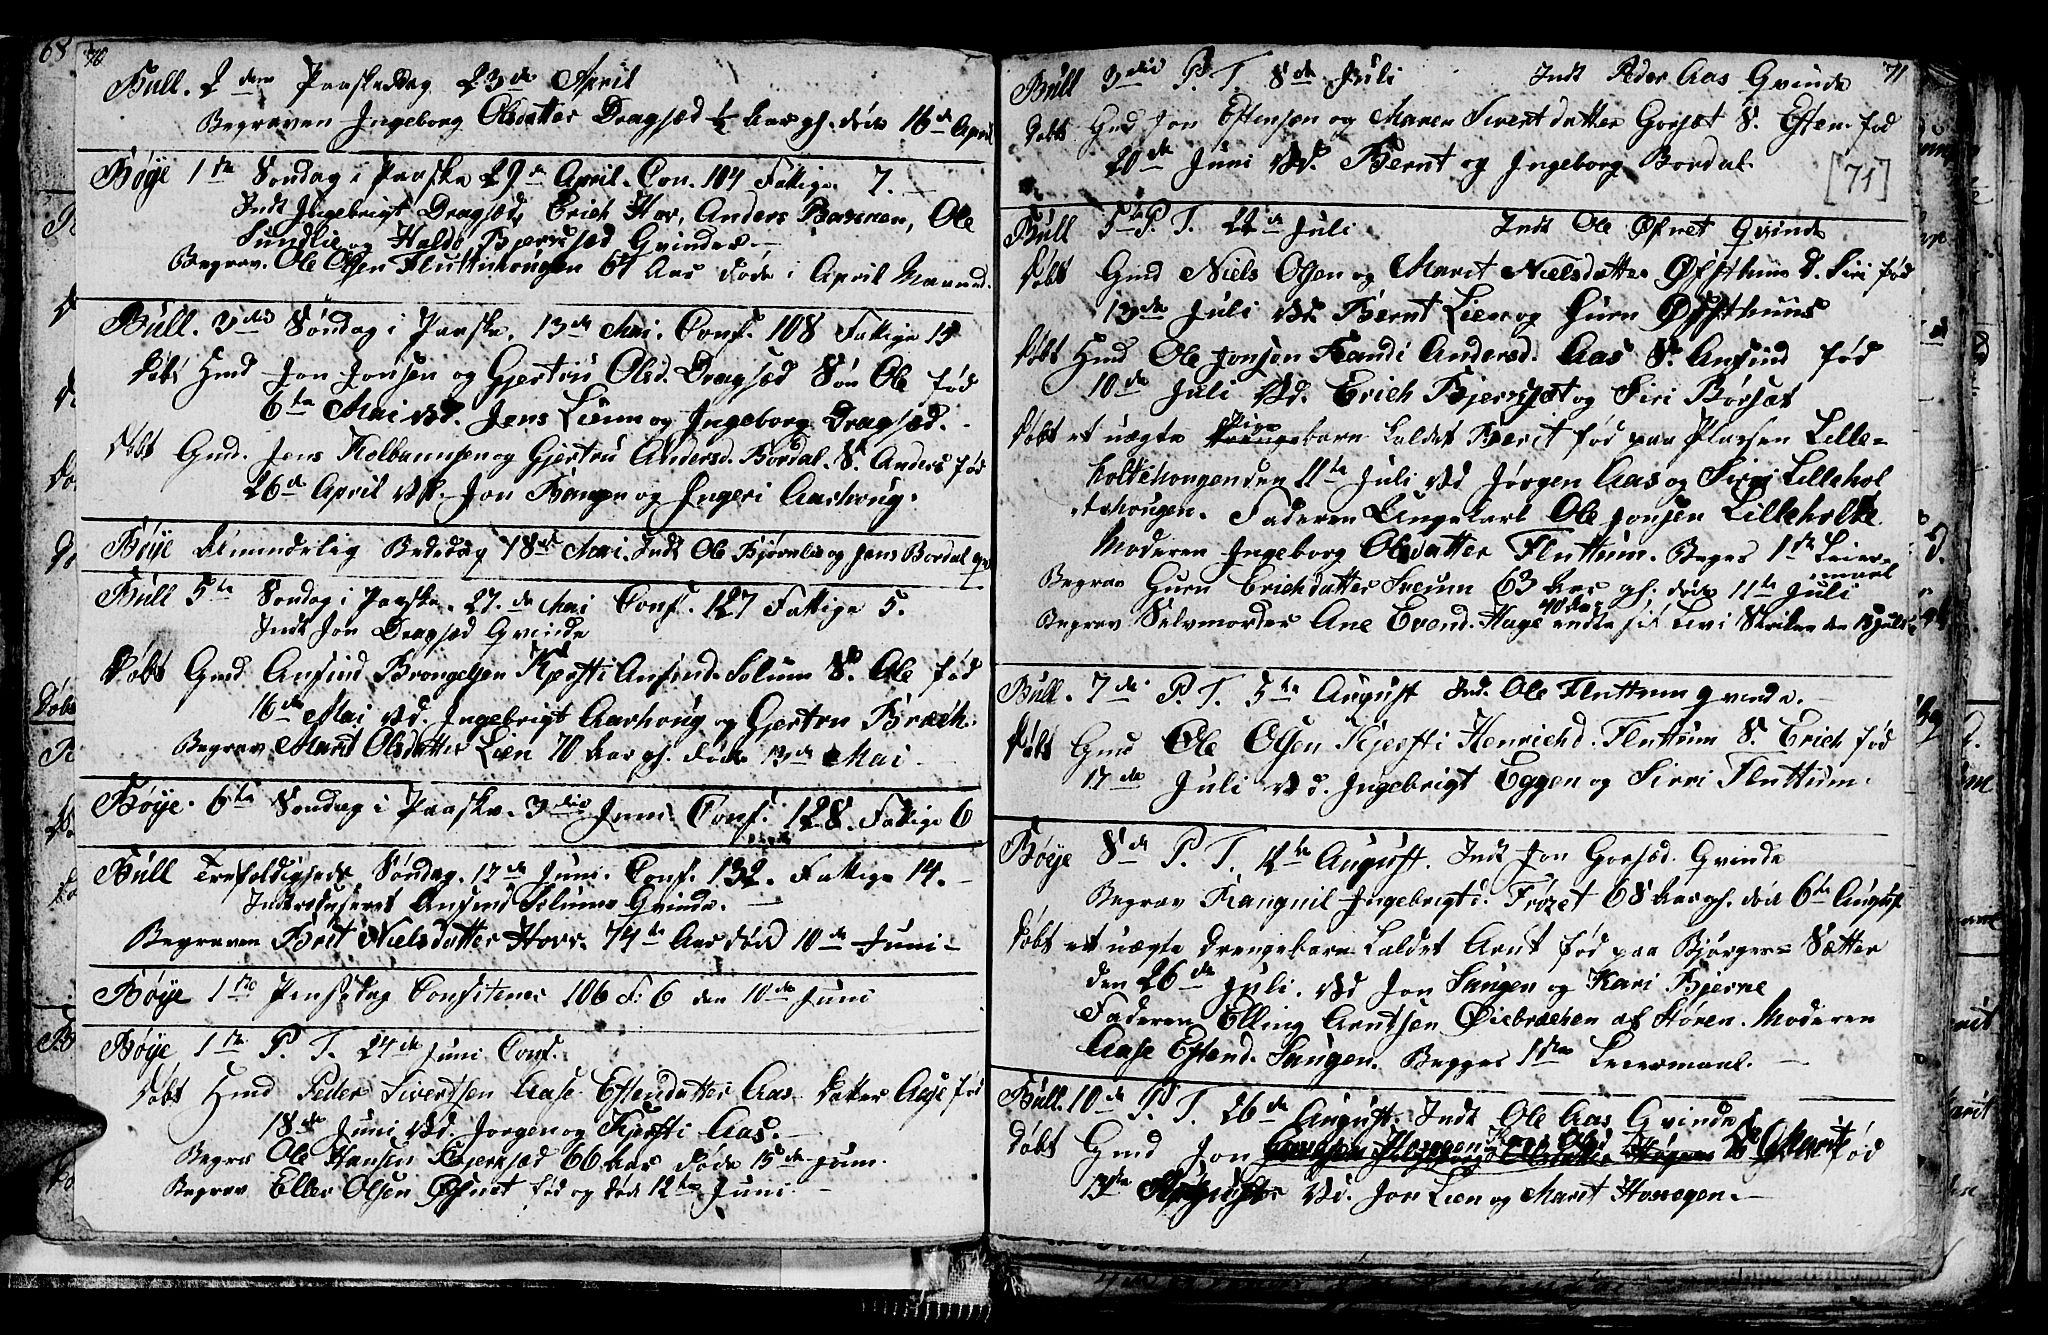 68 70
Büll. 2den Paaskedag 23de April
Begraven Ingeborg Olsdatter Dragsæd ½ Aar gl. døde 16de April
Bøye 1ste Søndag i Paaske 29de April. Con. 104 Fattige 7.
Indt Ingebrigt Dragsæd, Erich Hov, Anders Ole
Sundlie og Haldo Bjerksæd Qvinder.
Begrav. Ole Olsen Fluttumougen 67 Aar døde i April Maaned.
Büll. 3die Søndag i Paaske. 13de Mai. Conf. 108 Fattige 15
Døbt Hmd Jon Jonsen og Gjertru Olsd. Dragsæd Søn Ole fød
6te Mai Vd. Jens Lien og Ingeborg Dragsæd.
Døbt Gmd. Jens Kolbannsen og Gjertru Andersd. Bordal. S. Anders fød
26de April Vd. Jon og Ingeri Aashoug.
Bøye Almindelig Bededag 18de Mai. Indt Ole Bjørnlie og Jens Bordal
Büll 5te Søndag i Paaske. 27de Mai Conf. 127 Fattige 5.
Indt Jon Dragsæd Qvinde
Døbt Gmd Ansind Brongelsen Kjersti Ansind. Solum S. Ole fød
16de Mai Vd. Ingebrigt Aashoug og Gjertru Bræch.
Begrav Marit Olsdatter Lien 70 Aar gl. døde 13de Mai
Bøye. 6te Søndag i Paaske. 3die Juni Conf. 128. Fattige 6
Büll Trefoldigheds Søndag. 17de Juni. Conf. 132. Fattige 14.
Introduseret Ansind Solums Qvinde.
Begraven Brit Nielsdatter Hov. 74de Aar død 10de Juni
Bøye 1ste Pintsedag Confitenter 106 F. 6 den 10de Juni
Bøye 1ste P. T. 24de Juni Conf.
Døbt Hmd Peder Sivertsen Aase Estendatter Aas. Datter Aase fød
18de Juni Vd. Jørgen og Kjersti Aas.
Begrav Ole Hansen Bjerksæd 66 Aar døde 15de Juni.
Begrav Eller Olsen Øfnet fød og død 12te Juni.
71
Büll 3die P. T. 8de Juli Indt Peder Aas Qvinde
Døbt Gmd Jon Estensen og Maren Sivertdatter Gorsæt S. Esten fød
20de Juni Vd. Bernt og Ingeborg Bordal
[71]
Büll 5te P. T. 22de Juli Indt Ole Øfnet Qvinde
Døbt Gmd Niels Olsen og Marit Nielsdatter Øfsthuus D. Siri fød
13de Juli Vd. Bernt Lien og Gurn Øfsthuus
Døbt Hmd Ole Jonsen Randi Andersd. Aas S. Ansind fød
10de Juli Vd. Erich Bjerksæt og Siri Børsæt
Døbt et uægte Pigebarn kaldet Berit fød paa Pladsen Lille=
holtshougen den 11te Juli Vd Jørgen Aas og Sirri Lillehol
tshougen. Faderen Ungekarl Ole Jonsen Lilleholte
Moderen Ingeborg Olsdatter Fluttum. Begges 1ste Leier=
maal
Begrav Gurn Erichdatter Svenn 63 Aar gl. døde 11te Juli
Begrav Selvmorder Ane Evend. Hage 40 Aar endte sit Levi Skriken den 13 Juli
Büll. 7de P. T. 5te August Ind. Ole Fluttum qvinde.
Døbt Gmd Ole Olsen Kjersti Henrichd. Fluttum S. Erich fød
17de Juli Vd. Ingebrigt Eggen og Sirri Fluttum.
Bøye 8de P. T. 12te August. Indt Jon Gorsæd. Qvinde
Begrav Rangnil Ingebrigtd. Frøset 68 Aar gl. død 6te August
Døbt et uægte Drengebarn kaldet Arnt fød paa Bjørgen= Sætter
den 26de Juli. Vd Jon Langen og Kari Bjerne
Faderen Elling Arntsen Øiebrechen af Støren. Moderen
Aase Estend. Langen. Begges 1ste Leiermaal.
Büll. 10de P. T. 26de August. Indt Ole Aas Qvinde
Døbt Gmd Jon Kari Olsd D. Marit fød
August Vd. Jon Lien og Marit